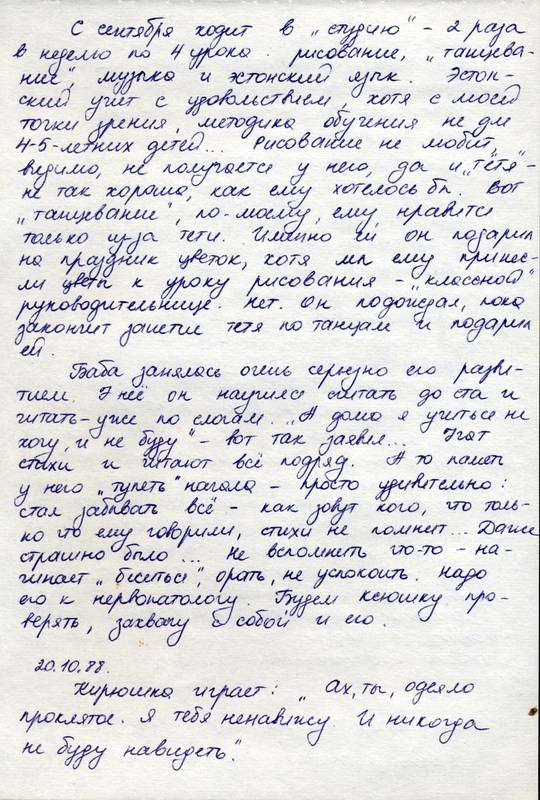 С сентября ходит в „студию" – 2 раза
в неделю по 4 урока. рисование, „танцева-
ние", музыка и эстонский язык. Эстон-
ский учит с удовольствием, хотя с моей
точки зрения, методика обучения не для
4-5-летних детей... Рисование не любит,
видимо, не получается у него, да и „тётя" –
не так хороша, как ему хотелось бы. Вот
„танцевание", по-моему, ему нравится
только из-за тёти. Именно ей он подарил
на праздник цветок, хотя мы ему принес-
ли цветы к уроку рисования – „классной"
руководительнице. Нет. Он подождал, пока
закончит занятие тётя по танцам и подарил
ей.
Баба занялась очень серьезно его разви-
тием. У неё он научился считать до ста и
читать – уже по слогам. „А дома я учиться не
хочу, и не буду" – вот так заявил...
стихи и читают всё подряд. А то память
у него „тупеть" начала – просто удивительно:
стал забывать всё – как зовут кого, что толь-
ко что ему говорили, стихи не помнит... Даже
страшно было ... Не вспомнить что-то – на-
чинает „беситься", орать, не успокоить. Надо
его к невропатологу. Будем Ксюшку про-
верять, захвачу с собой и его.
20.10.88.
Кирюшка играет: „Ах, ты, одеяло
проклятое. Я тебя ненавижу. И никогда
не буду навидеть".